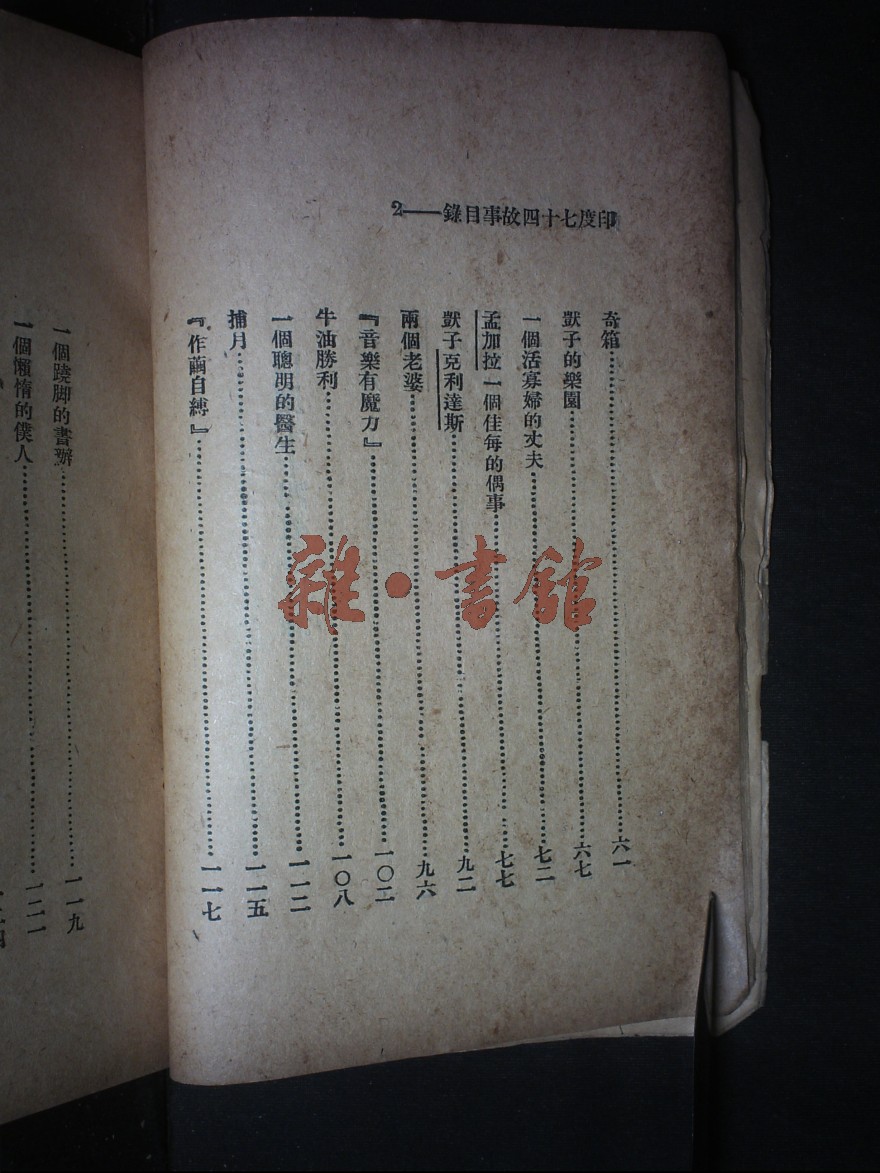 印度七十四故事目錄——2
奇箱……六一
獃子的樂園……六七
一個活寡婦的丈夫……七二
孟加拉一個佳每的偶事……七七
獃子克利達斯……九二
兩個老婆……九六
『音樂有魔力』……一〇二
牛油勝利……一〇八
一個聰明的醫生……一一二
捕月……一一五
『作繭自縛』……一一七
一個蹺脚的書辦……一一九
一個懶惰的僕人……一二一
雜·書館